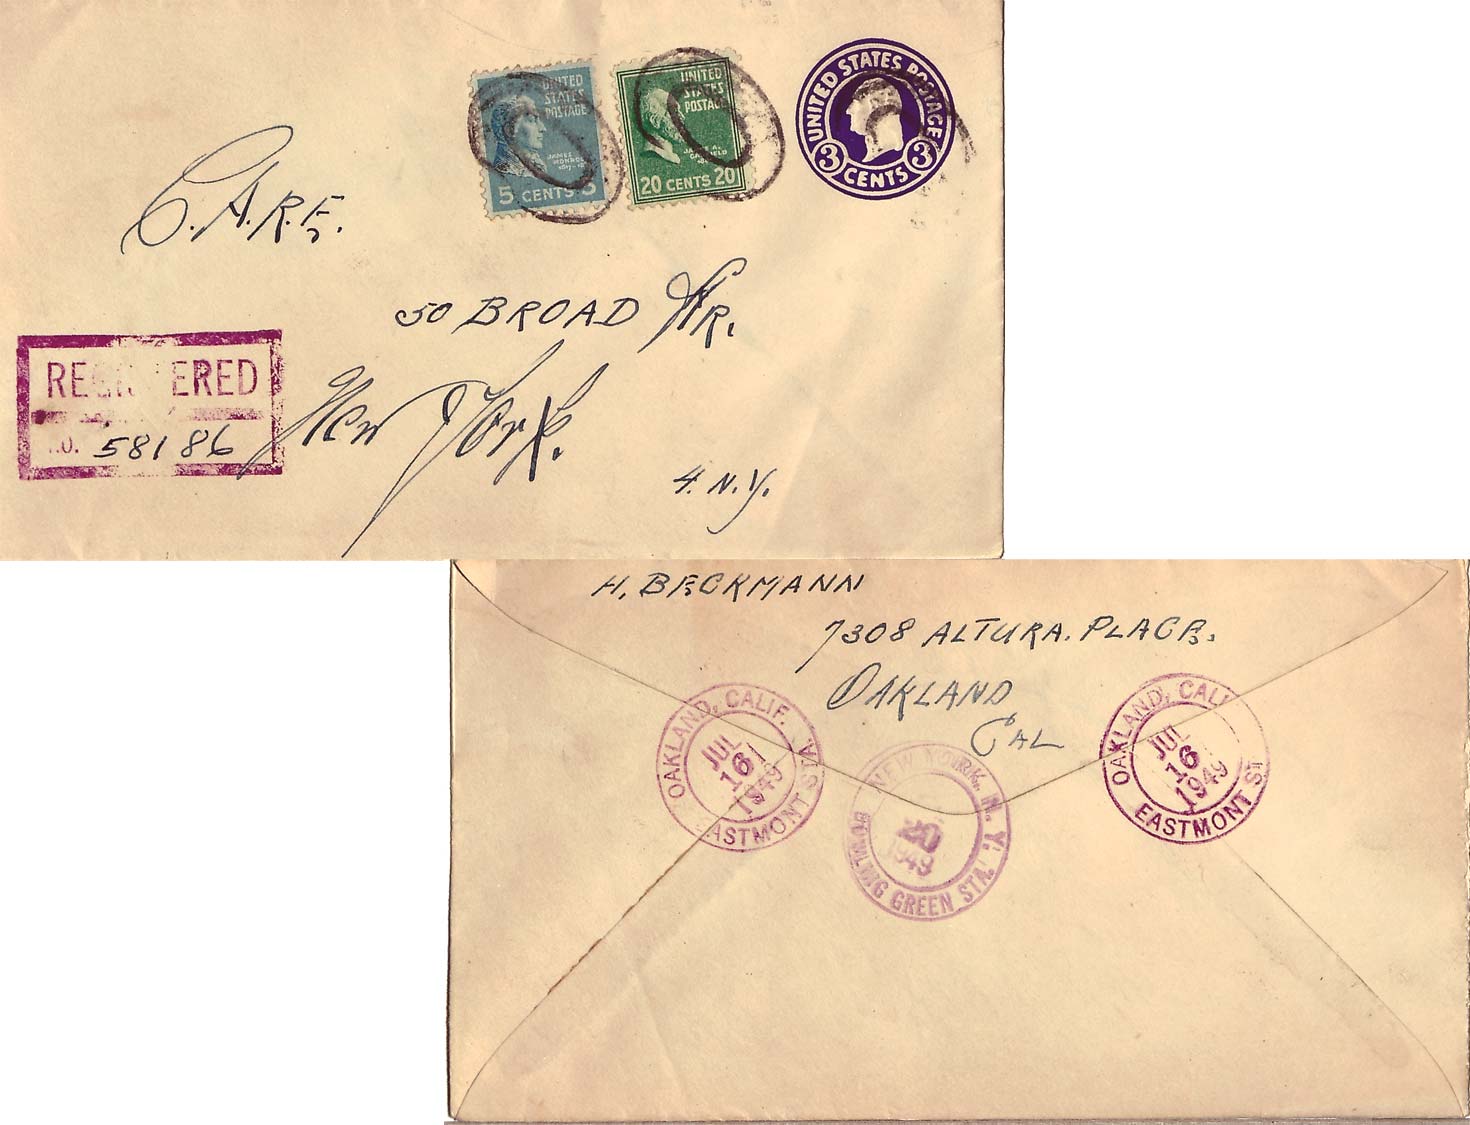 UNITED
STATES
POSTAGE
JAMES
MONROE
5 CENTS 5
UNITED
STATES
POSTAGE
JAMES A.
GARFIELD
20 CENTS 20
UNITED STATES POSTAGE
3 CENTS 3
C.A.R.E.
50 BROAD STR.
New York.
4. N.Y.
REGISTERED
NO. 58186
H. BECKMANN
7308 ALTURA. PLACE.
OAKLAND
CAL
OAKLAND, CALIF.
JUL
16
1949
EASTMONT STA.
NEW YORK, N.Y.
20
1949
BOWLING GREEN STA.
OAKLAND, CALI
JUL
16
1949
EASTMONT ST